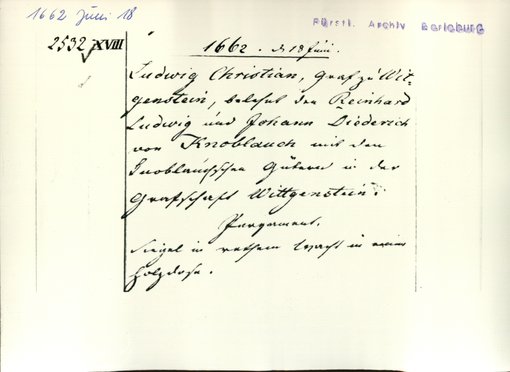 1662 Juni 18
Fürstl. Archiv Berleburg
2532 XVIII
1662. d. 18 Juni.
Ludwig Christian, Graf zu Wit-
genstein, belehnt den Reinhard
Ludwig und Johann Diederich
von Knoblauch mit den
Knoblauchschen Gütern in der
Grafschaft Wittgenstein.
Pergament.
Siegel in rothem Wachs in einer
Holzdose.